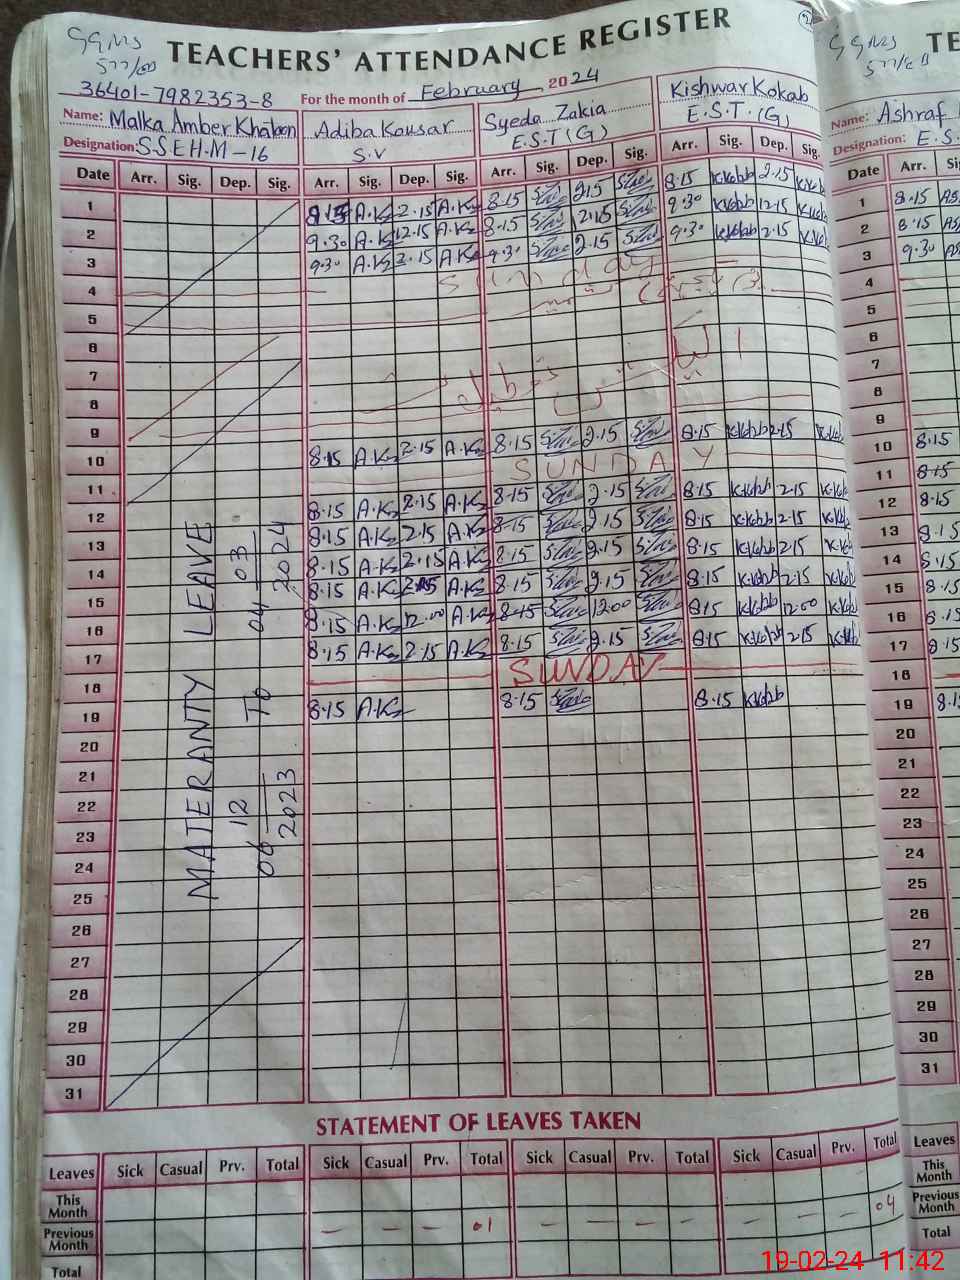 GGMS
577/GB
TEACHERS' ATTENDANCE REGISTER
2
36401-7982353-8
For the month of February 2024
Name: Malka Amber Khatoon Adiba Kousar Syeda Zakia Kishwar Kokab
Designation: S.S.E H.M-16 S.V E.S.T(G) E.S.T.(G)
Date Arr. Sig. Dep. Sig. Arr. Sig. Dep. Sig. Arr. Sig. Dep. Sig. Arr. Sig. Dep. Sig.
1 8.15 A.K 2.15 A.K 8.15 2.15 8.15 kkbb 2.15
2 9.30 A.K 12.15 A.K 8.15 12.15 9.30 kkbb 12.15
3 9.30 A.K 2.15 A.K 9.30 2.15 9.30 kkbb 2.15
4 Sunday
5
6
7
8
9
10 8.15 A.K 2.15 A.K 8.15 2.15 8.15 kkbb 2.15
11 SUNDAY
12 8.15 A.K 2.15 A.K 8.15 2.15 8.15 kkbb 2.15
13 8.15 A.K 2.15 A.K 8.15 2.15 8.15 kkbb 2.15
14 8.15 A.K 2.15 A.K 8.15 2.15 8.15 kkbb 2.15
15 8.15 A.K 2.15 A.K 8.15 2.15 8.15 kkbb 2.15
16 8.15 A.K 12.00 A.K 8.15 12.00 8.15 kkbb 12.00
17 8.15 A.K 2.15 A.K 8.15 2.15 8.15 kkbb 2.15
18 SUNDAY
19 8.15 A.K 8.15 8.15 kkbb
20
21
22
23
24
25
26
27
28
29
30
31
MATERANTY LEAVE
06 12 2023 To 04-03 2024
STATEMENT OF LEAVES TAKEN
Leaves Sick Casual Prv. Total Sick Casual Prv. Total Sick Casual Prv. Total Sick Casual Prv. Total
This Month
Previous Month - - - 01 - - - - - - - 04
Total
GGMS
TE
Name: Ashraf
Designation: E.S.
Date Arr.
1 8.15
2 8.15
3 9.30
4
5
6
7
8
9
10 8.15
11 8.15
12 8.15
13 8.15
14 8.15
15 8.15
16 8.15
17 8.15
18
19
20
21
22
23
24
25
26
27
28
29
30
31
Leaves
This Month
Previous Month
Total
19-02-24 11:42